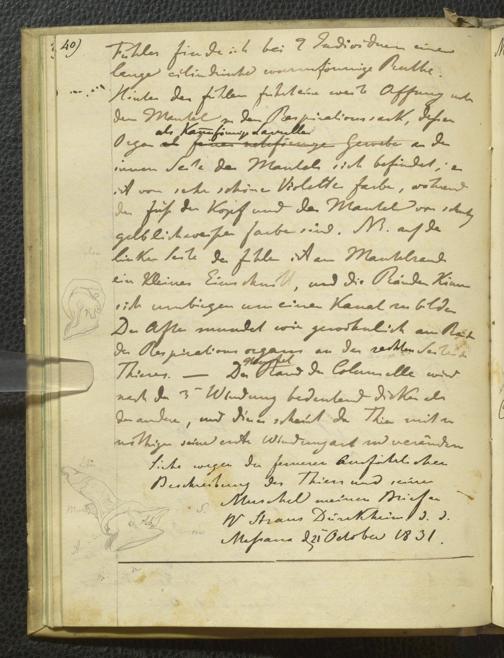 40)
Fühler finde ich bei 2 Individuen eine
lange cilindrische wurmförmige Ruthe.
Hinter den fühlern führt eine weite Öffnung unter
dem Mantel zu dem Respirationssack, dessen
als Kammförmige Lamellen
Organ an der
innern Seite des Mantels sich befindet, er
ist von sehr schöne Violette farbe, während
der fuß der Kopf und der Mantel von
gelblichweißer farbe sind. NB. auf der
linken Seite der fühler ist am Mantelrand
ein kleines Einschnitt, und die Ränder können
sich umbiegen um einen Kanal zu bilden
Der After mündet wie gewöhnlich am
des Respirations organs an der rechten Seite des
Thieres. — Der Rand der Columelle wird
nach der 3ten Windung bedeutend dicker als
der andere, und dieses scheint das Thier mit zu
nöthigen seine erste Windungsart zu verändern
Siehe wegen der ferneren Ausführlichen
Beschreibung des Thiers und seiner
Muschel meinen Brief an
Hr Straus Dürckheim d. d.
Messina d 21 October 1831.